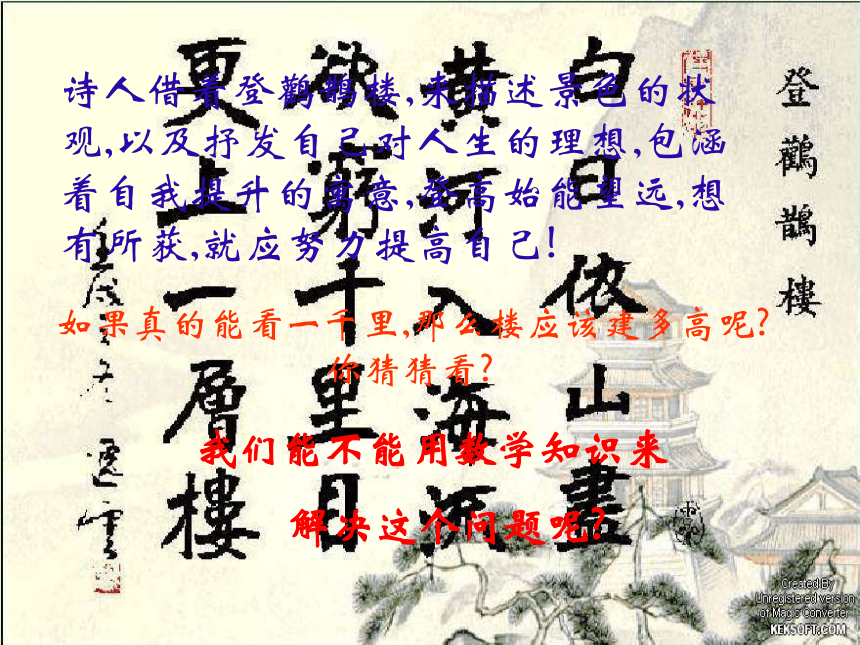 登鸛鵲樓
白日依山盡
黄河入海流
欲窮千里目
更上一層樓
诗人借着登鹳鹊楼,来描述景色的状
观,以及抒发自己对人生的理想,包涵
着自我提升的寓意,登高始能望远,想
有所获,就应努力提高自己!
如果真的能看一千里,那么楼应该建多高呢?
你猜猜看?
我们能不能用数学知识来
解决这个问题呢?
Created By
Unregistered version
of Magic Converter
KEKSOFT.COM